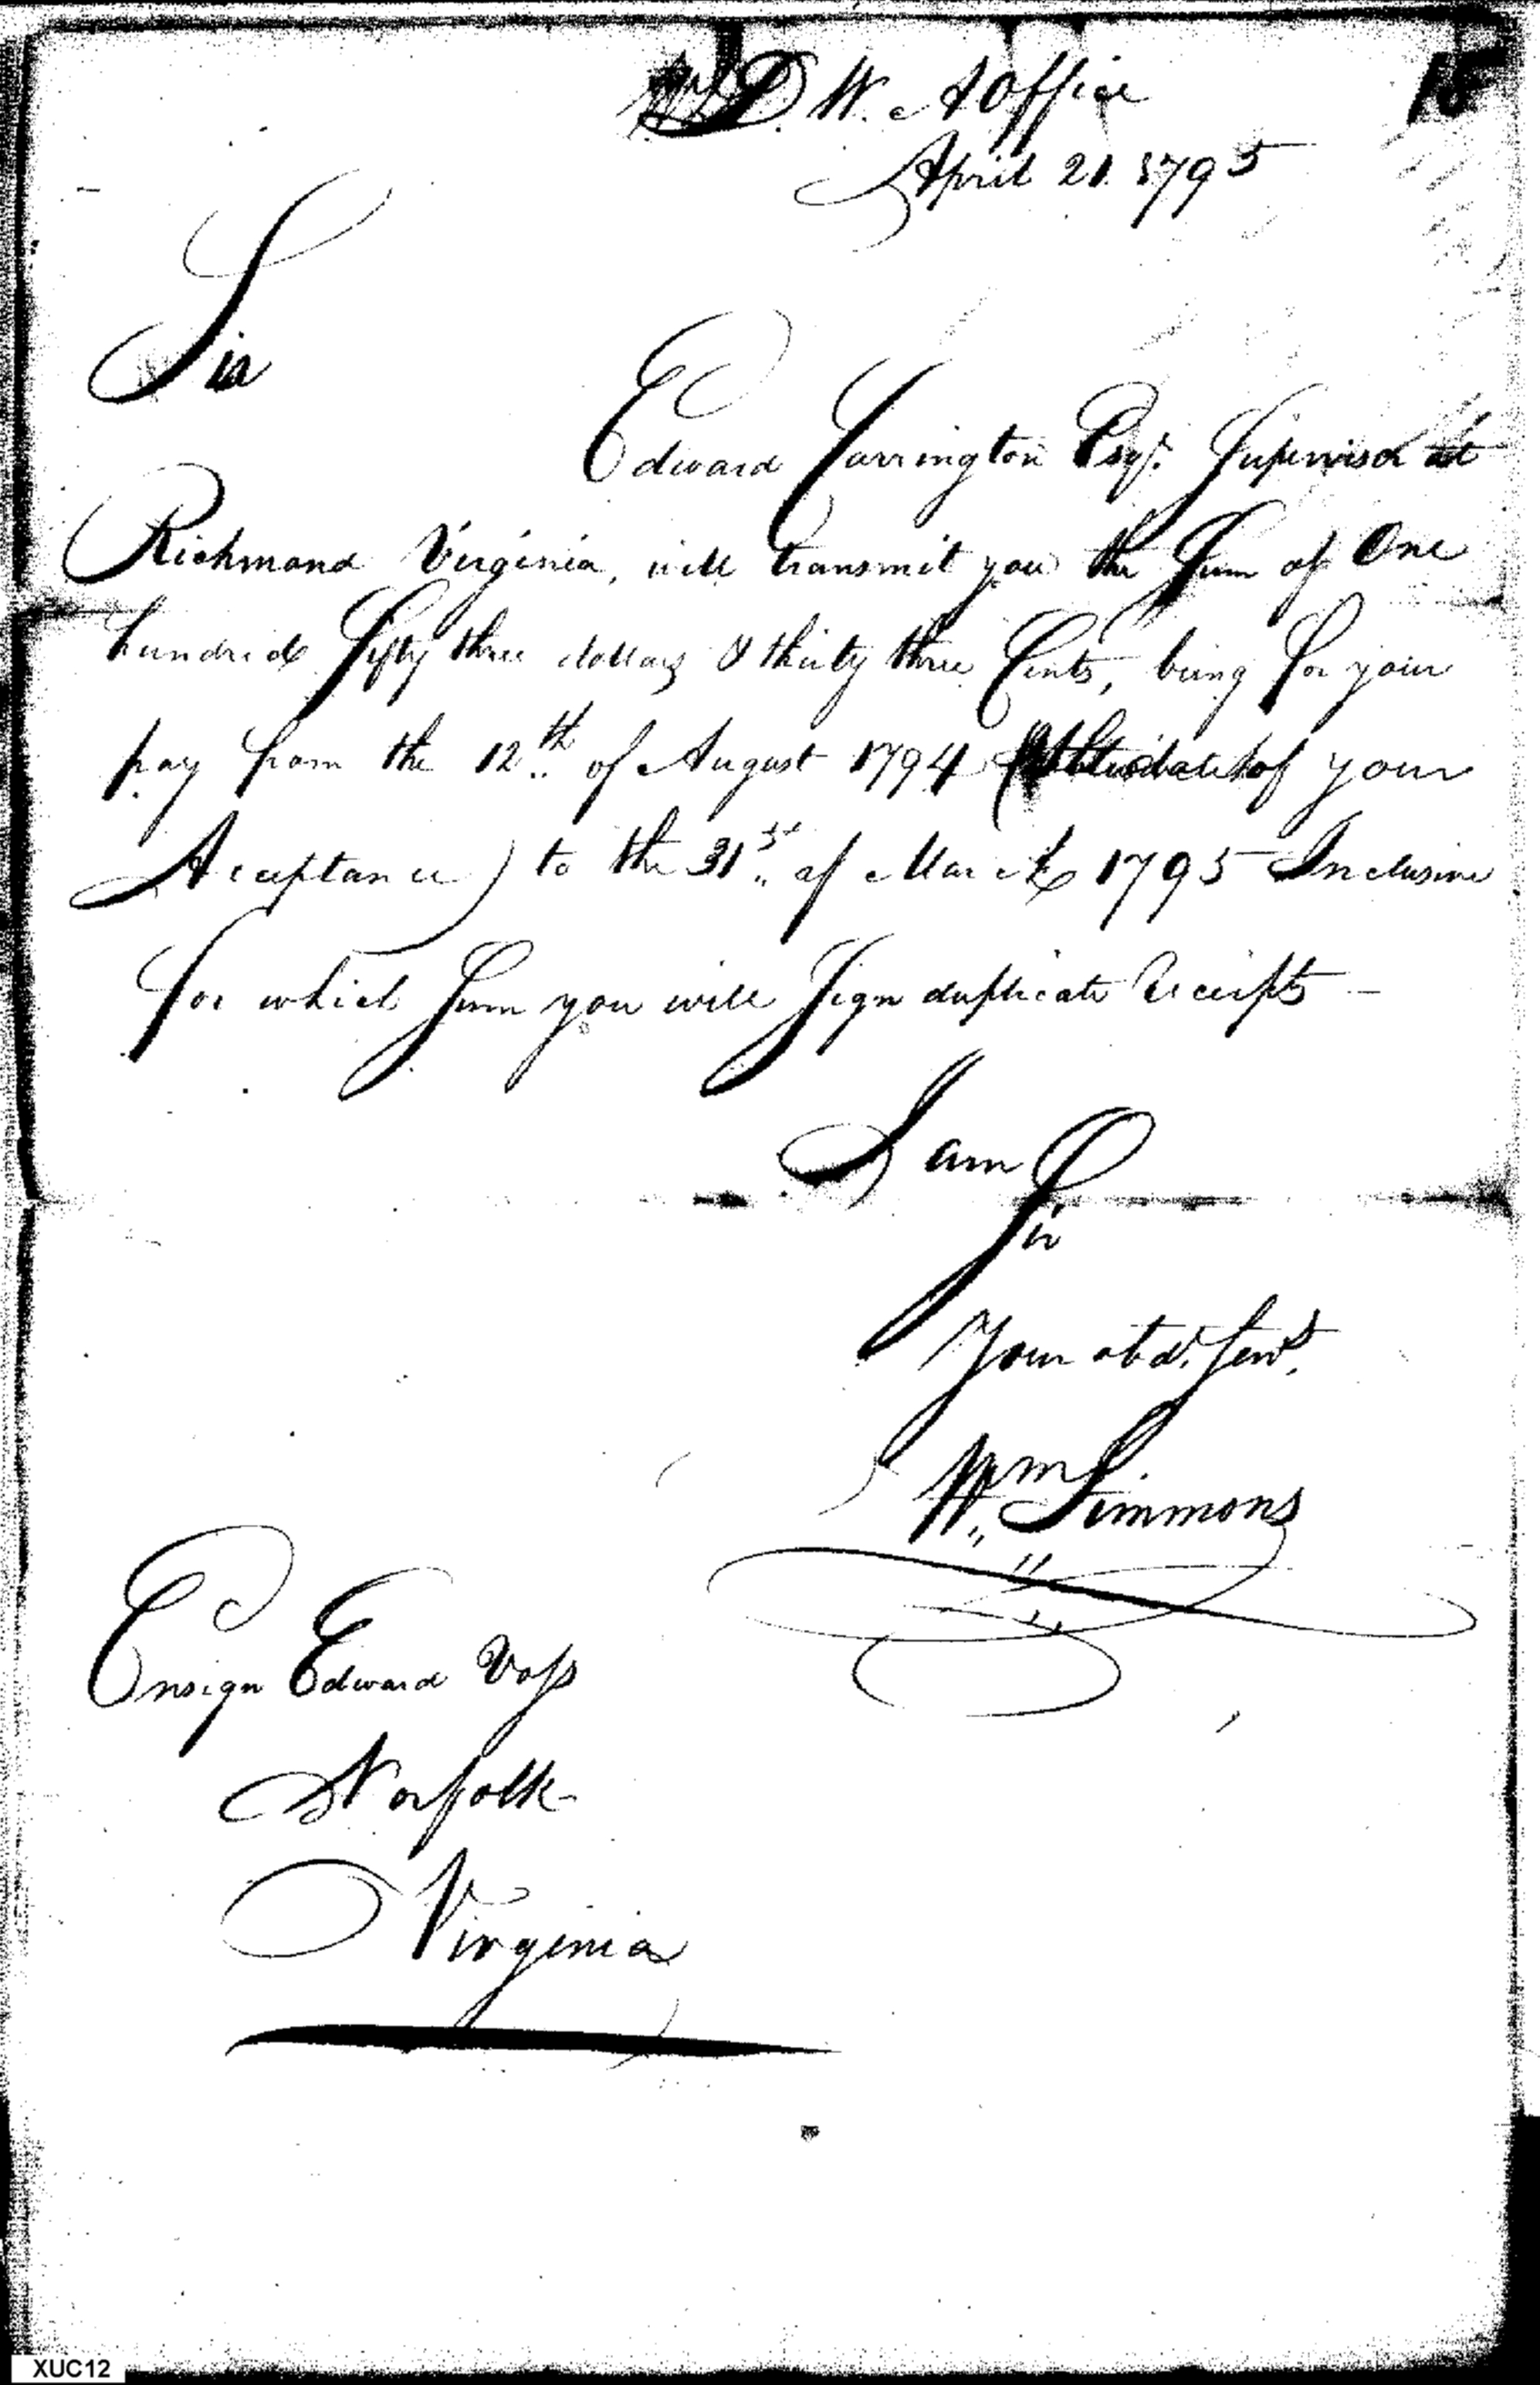 D. W. A Office
15
April 21. 1795
Sir
Edward Carrington Esqr. Supervisor at
Richmond Virginia, will transmit you the Sum of One
hundred fifty three dollars & thirty three Cents, being for your
pay from the 12th of August 1794 (the date of your
Acceptance) to the 31st of March 1795 Inclusive
for which Sum you will Sign duplicate Receipts —
I am
Sir
Your obdt. Servt.
Wm Simmons
Ensign Edward Voss
Norfolk
Virginia
XUC12